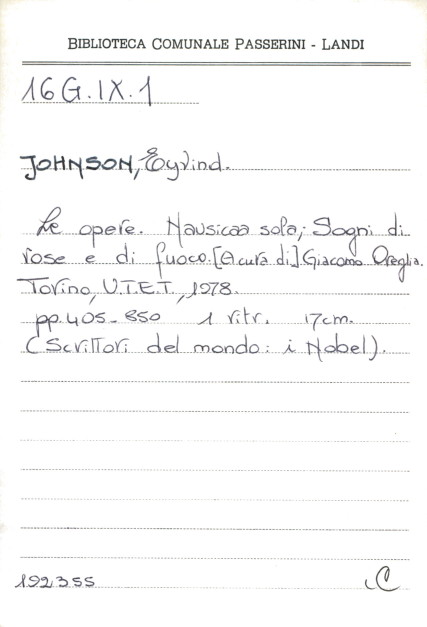 BIBLIOTECA COMUNALE PASSERINI - LANDI
16 G.IX.1
JOHNSON, Eyvind.
Le opere. Nausicaa sola; Sogni di
rose e di fuoco. [A cura di] Giacomo Oreglia.
Torino, U.T.E.T., 1978.
pp. 405-850 1 ritr. 17cm.
(Scrittori del mondo: i Nobel).
192355 C